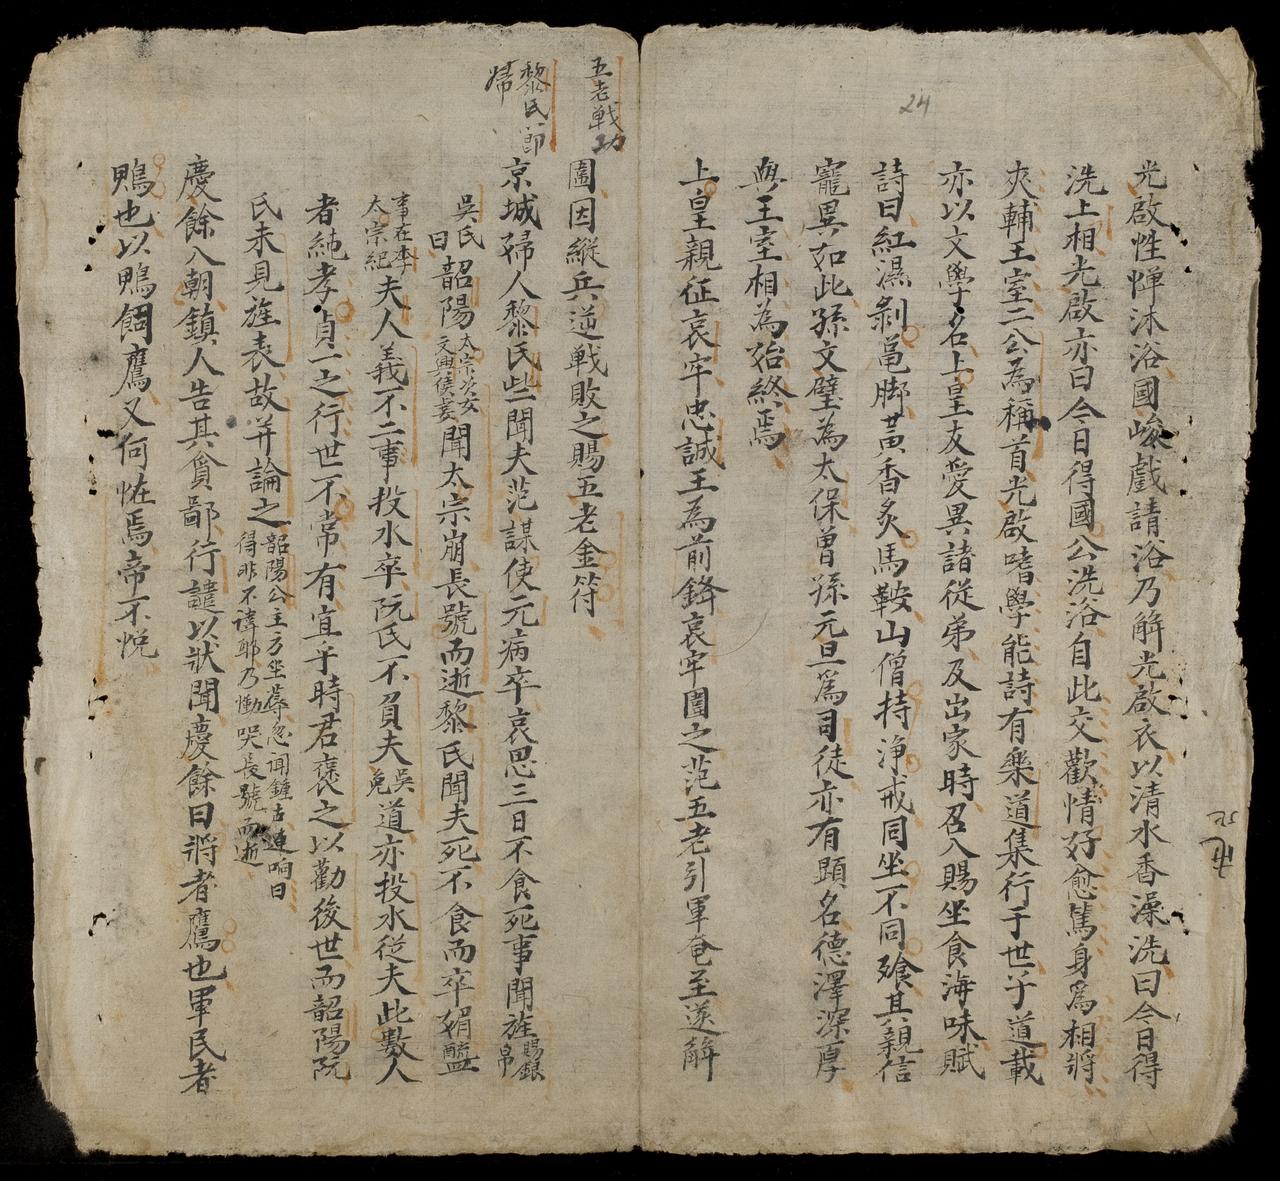 24
光啟性憚沐浴國峻戲請浴乃解光啟衣以清水香澡洗曰今日得
洗上相光啟亦曰今日得國公洗浴自此交歡情好愈篤身爲相將
夾輔王室二公為稱首光啟嗜學能詩有樂道集行于世子道載
亦以文學名上皇友愛異諸從弟及出家時召入賜坐食海味賦
詩曰紅濕剝龜脚黃香炙馬鞍山僧持浄戒同坐不同飱其親信
寵異如此孫文璧為太保曽孫元旦爲司徒亦有顕名德澤深厚
與王室相為始終焉
上皇親征哀牢忠誠王為前鋒哀牢圍之范五老引軍奄至遂解
五老戦功
圍因縱兵逆戦敗之賜五老金符
黎氏節
婦
京城婦人黎氏些聞夫范謀使元病卒哀思三日不食死事聞旌賜銀
帛
吳氏
曰韶陽太宗次女
文興侯妻聞太宗崩長號而逝黎氏聞夫死不食而卒媚醯
事在李
太宗紀夫人義不二事投水卒阮氏不負夫吳
免道亦投水従夫此數人
者純孝貞一之行世不常有宜乎時君褒之以勸後世而韶陽阮
氏未見旌表故并論之韶陽公主方坐蓐忽聞鐘古連响曰
得非不諱耶乃慟哭長號而逝
慶餘入朝鎮人告其貪鄙行譴以狀聞慶餘曰將者鷹也軍民者
鴨也以鴨飼鷹又何恠焉帝不悦